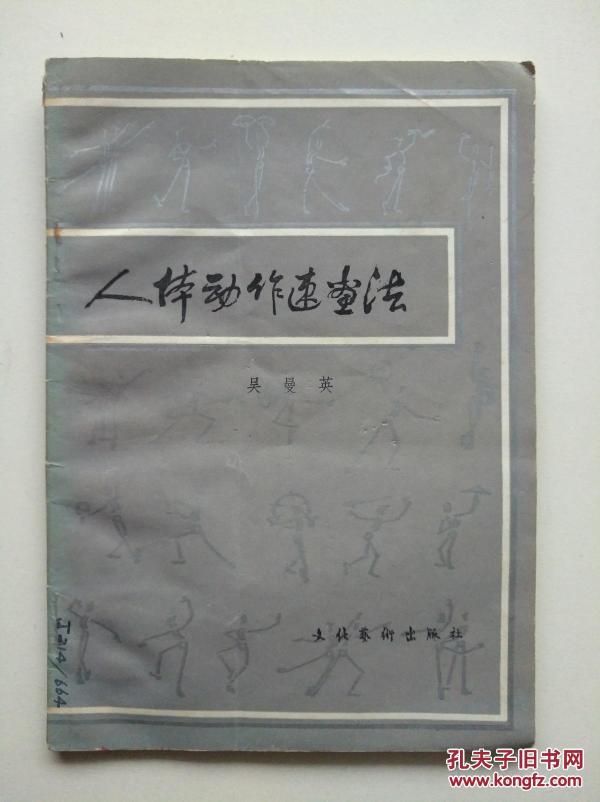 人体动作速画法
吴曼英
文化艺術出版社
J214/664
孔夫子旧书网
www.kongfz.com